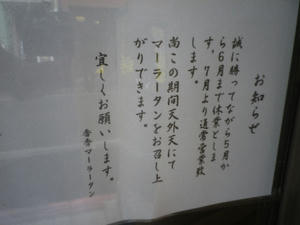 お知らせ
誠に勝ってながら５月か
ら６月まで休業としま
す。７月より通常営業致
します。
尚この期間天外天にて
マーラータンをお召し上
がりできます。
宜しくお願いします。
香香マーラータン